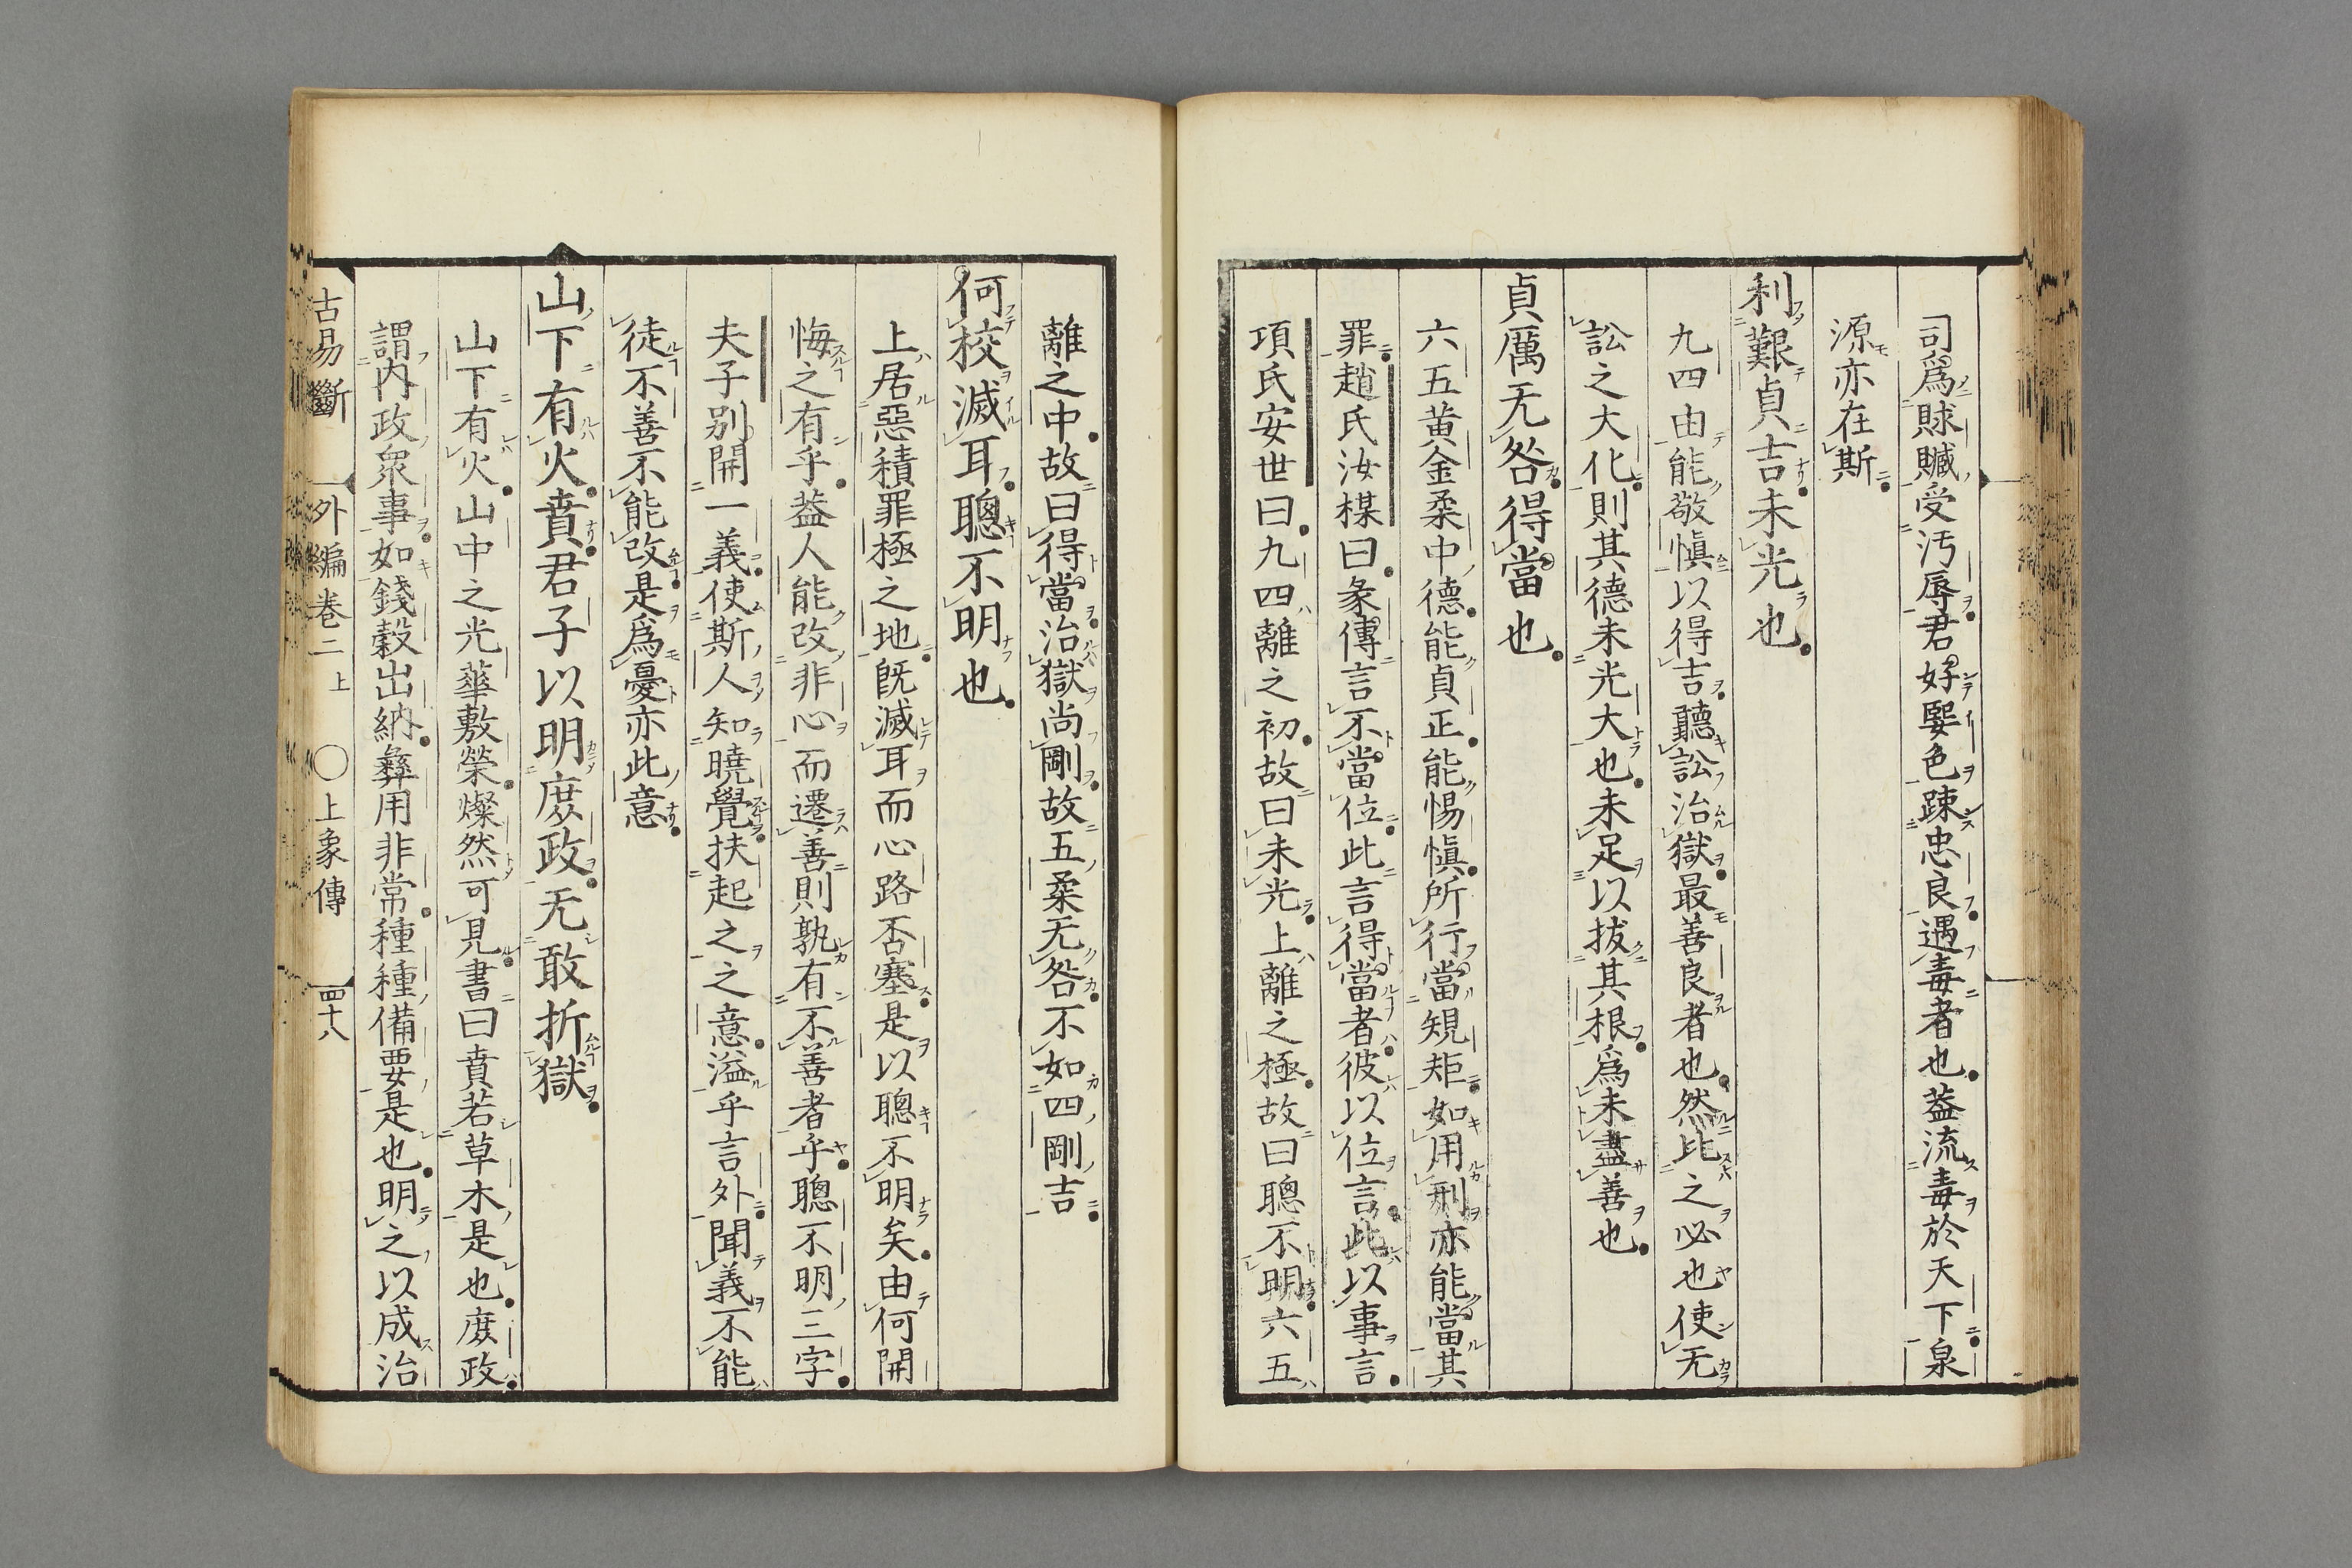 司爲賕贓受汚辱君好嬖色踈忠良遇毒者也葢流毒於天下泉
源亦在斯
利艱貞吉未光也
九四由能敬愼以得吉聽訟治獄最善良者也然比之必也使无
訟之大化則其德未光大也未足以拔其根爲未盡善也
貞厲无咎得當也
六五黃金柔中德能貞正能惕愼所行當規矩如用刑亦能當其
罪趙氏汝楳曰象傳言不當位此言得當者彼以位言此以事言
項氏安世曰九四離之初故曰未光上離之極故曰聰不明六五
離之中故曰得當治獄尚剛故五柔无咎不如四剛吉
何校滅耳聰不明也
上居惡積罪極之地旣滅耳而心路否塞是以聰不明矣由何開
悔之有乎葢人能改非心而遷善則孰有不善者乎聰不明三字
夫子別開一義使斯人知曉覺扶起之之意溢乎言外聞義不能
徒不善不能改是爲憂亦此意
山下有火賁君子以明庶政无敢折獄
山下有火山中之光華敷榮燦然可見書曰賁若草木是也庶政
謂內政衆事如錢穀出納彝用非常種種備要是也明之以成治
古易斷 外編卷二上 ○上象傳 四十八